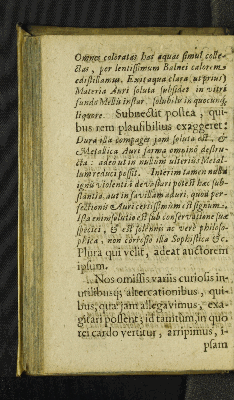 Omnes coloratas has aquas simul colle-
ctas, per lentissimum Balnei calorem
edistillamus. Exit aqua clara ut prius)
Materia Auri soluta subsidet in vitri
fundo Mellis instar solubilis in quocunq;
liquore. Subnectit postea, qui-
bus rem plausibilius exaggeret:
Dura illa compages jam soluta est, &
Metallica Auri forma omnino destru-
cta: adeo ut in nullum ulterius Metal-
lum reduci possit. Interim tamen nulla
ignis violenti à devastari potest hæc sub-
stantia, aut in favillam aduri, quod per-
fectionis Auri certissimum est signum.
Ista enim solutio est sub conservatione suæ
speciei, & est solennis ac verè philoso-
phica, non corrosio illa Sophistica &c.
Plura qui velit, adeat auctorem
ipsum.
Nos omissis variis curiosis in-
utilibusq; altercationibus, qui-
bus, quæ jam allegavimus, exa-
gitari possent; id tantum, in quo
rei cardo vertitur, arripimus, i-
psam